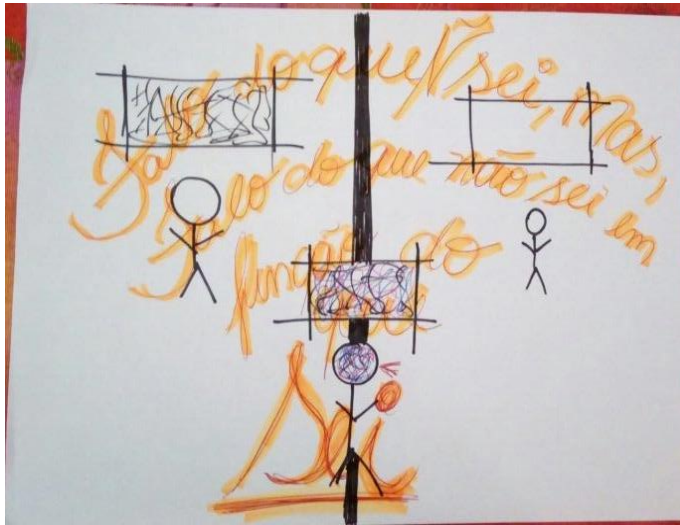 Falo do que Ñ sei, mas,
Falo do que não sei em
função do
que
Sei